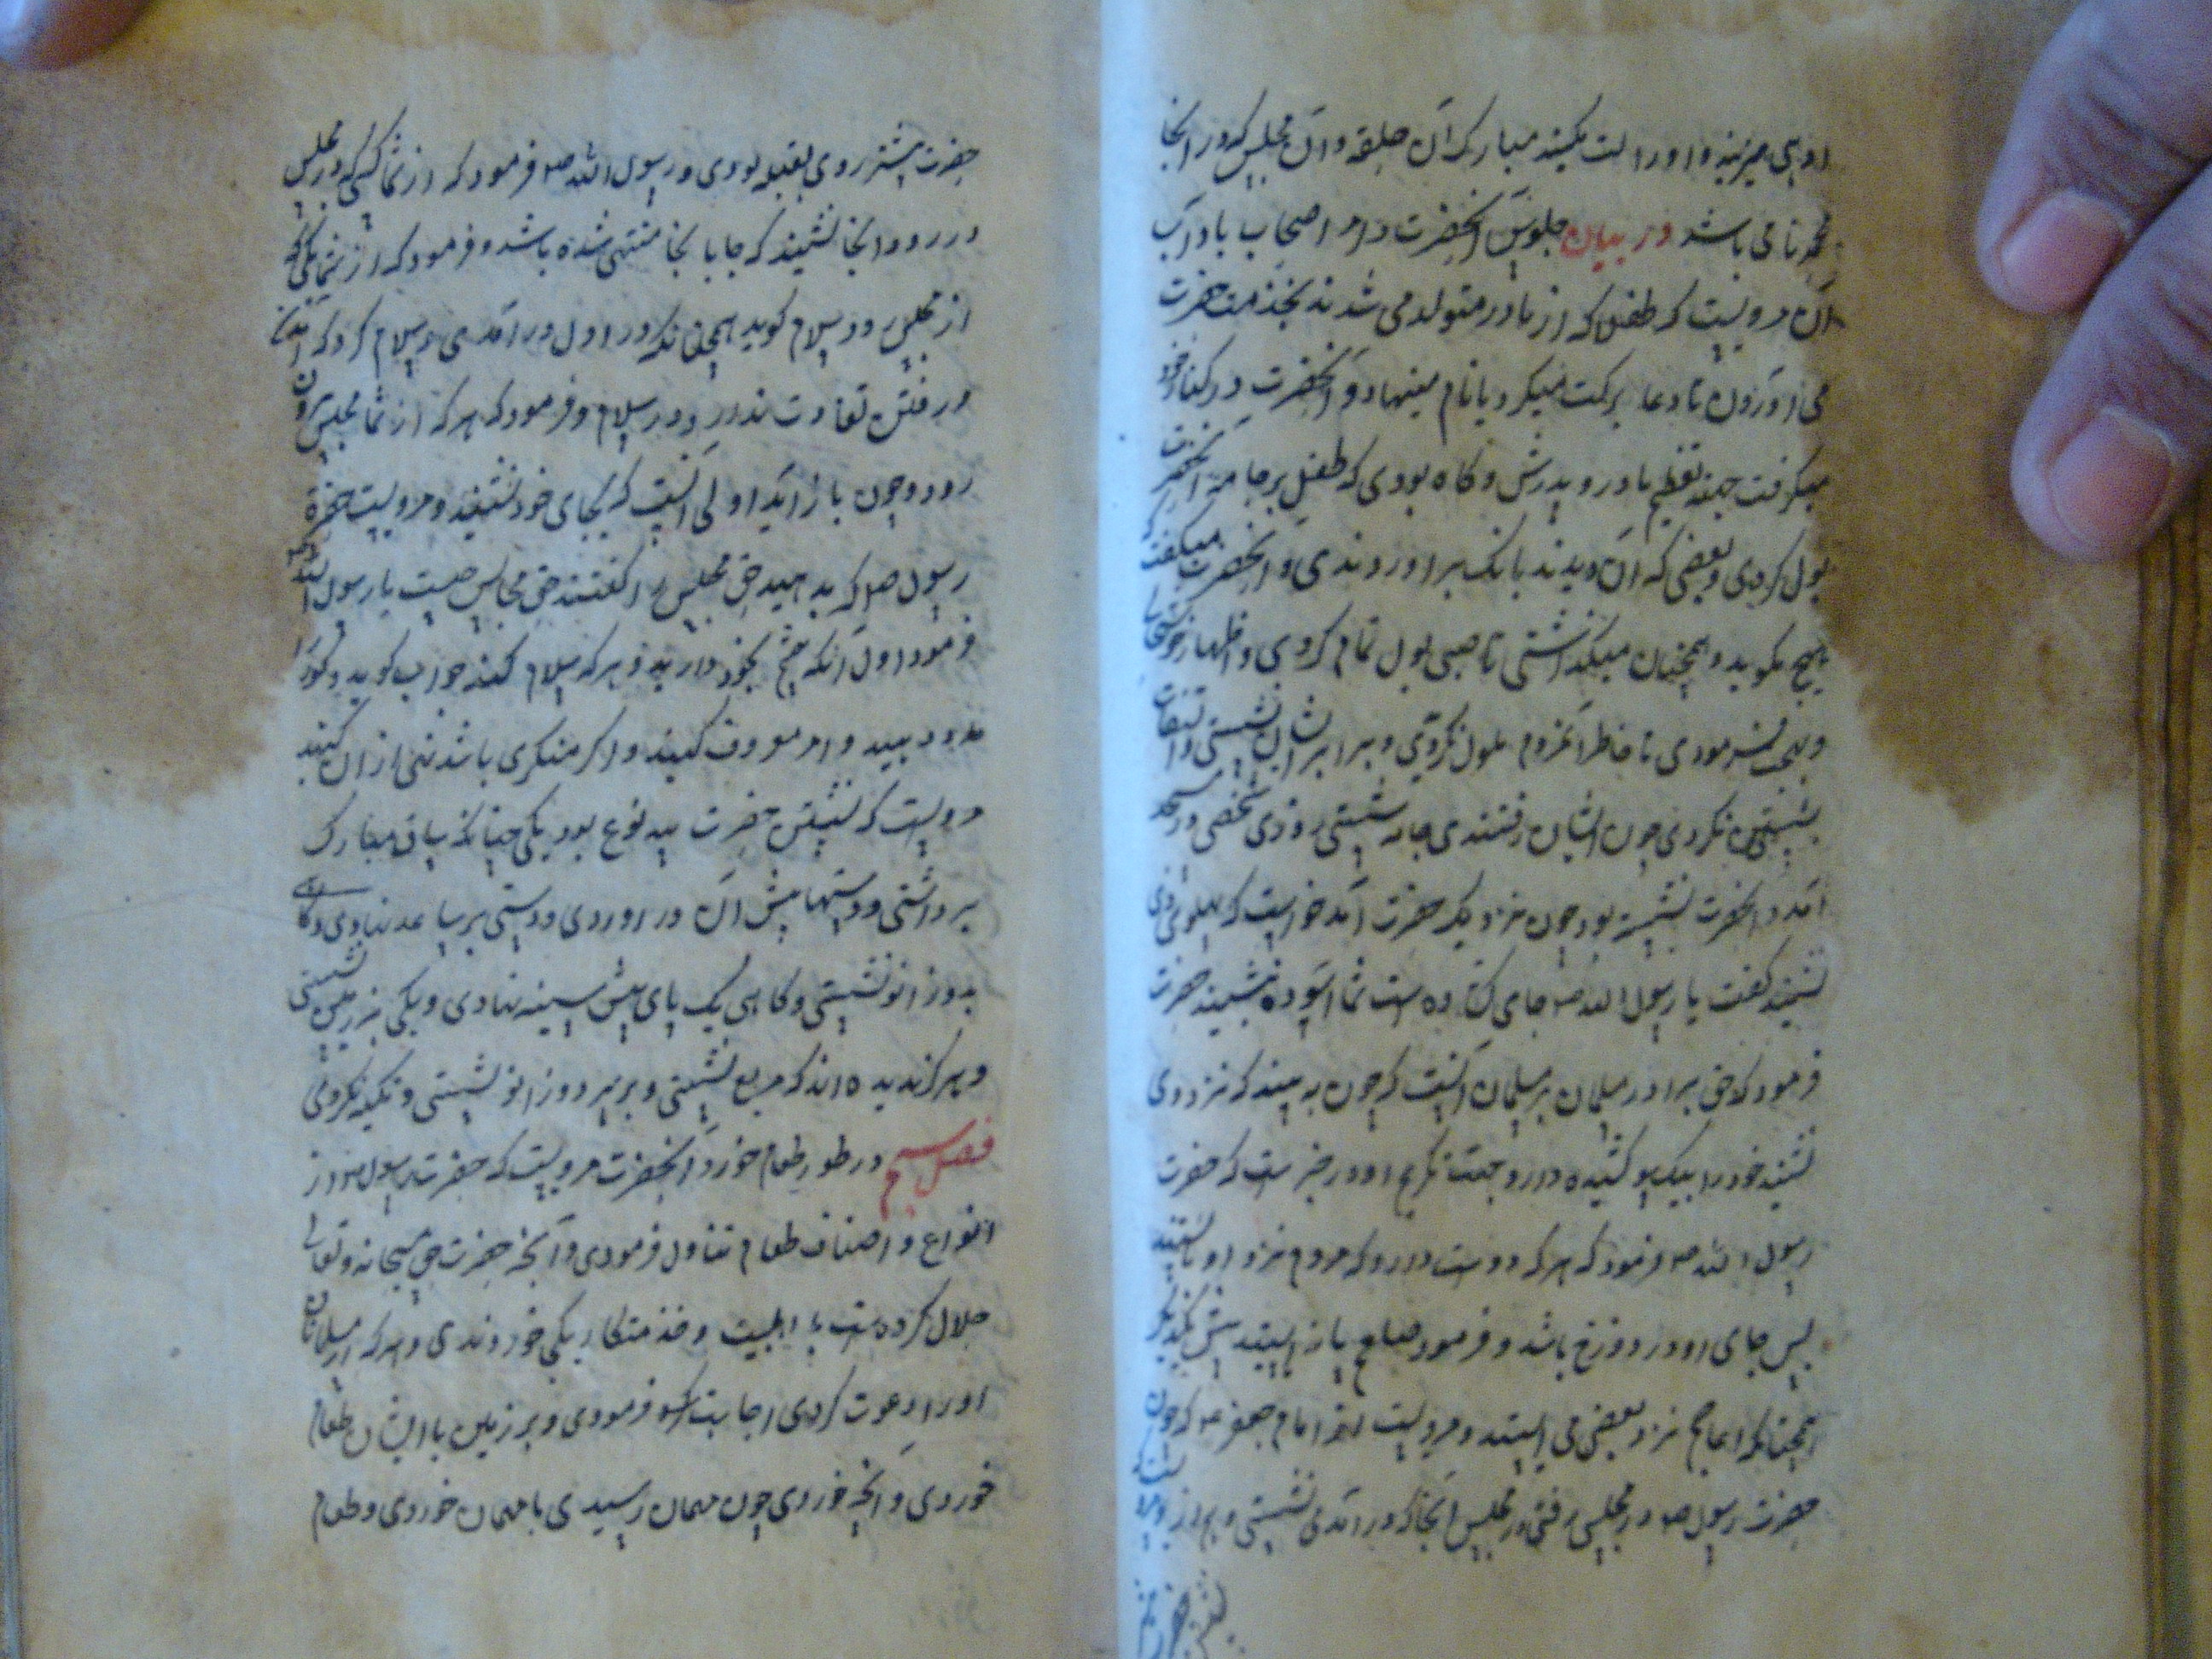 او بی میزنید و او را لت میکنید مبارک آن حلقه و آن مجلس که در انجا
محمد نامی باشد در بیان جلوس آنحضرت و امر اصحاب باداب
آن مرویست که طفل که از مادر متولد می شدند بخدمت حضرت
می آوردن تا دعا برکت میکرد یا نام مینهاد و آنحضرت در کنار خود
میکرفت جهة تعظیم مادر و پدرش و کاه بودی که طفل بر جامه آنحضرت
بول کردی و بعضی که آن دیدند بانک بر اوردندی و آنحضرت میکفت که
هیچ مکوید و همچنان میکذاشتی تا صبی بول تمام کردی و اظهار خوشحالی
نمودی تا خاطر آنمردم ملول نکردی و برابر ایشان نشستی و التفات
بشستن نکردی چون ایشان رفتندی جامه شستی روزی شخصی در مسجد
آمد و آنحضرت نشسته بود چون نزدیک حضرت آمد خواست که پهلوی وی
نشیند کفت یا رسول الله ص جای کشاده است شما آسوده نشینید حضرت
فرمود که حق برادر مسلمان بر مسلمان آنست که چون به بیند که نزد وی
نشیند خود را بیک سو کشیده دارد و جهت تکریم او و در خبر است که حضرت
رسول الله ص فرمود که هر که دوست دارد که مردم نزد او بایستند
پس جای او در دوزخ باشد و فرمود باز نایستید پیش یکدیکر
همچنانکه اعاجم نزد بعضی می ایستند و مرویست از امام جعفر ع که چون
حضرت رسول ص در مجلسی رفتی در مجلس آنجا که در آمدی نشستی و
حضرت بیشتر روی بقبله بودی و رسول الله ص فرمود که از شما کسی که در مجلس
در رود آنجا نشیند که جا بانجا منتهی شده باشد و فرمود که از شما یکی که
از مجلس رود سلام کوید همچنانکه در اول در آمدی سلام کرد که آمدن
و رفتن تفاوت ندارد در سلام و فرمود که هر که از شما از مجلس بیرون
رود و چون باز آید اولی آنست که بجای خود نشیند و مرویست حضرة
رسول ص که بدهید حق مجلس را کفتند حق مجالس چیست یا رسول الله
فرمود اول آنکه چشم بخود دارید و هر که سلام کند جواب کوید و کور را
مدد دهید و امر معروف کنید و اکر منکری باشد نهی از آن کنید
مرویست که نشستن حضرت سه نوع بود یکی چنانکه ساق مبارک
برداشتی و دستها پیش آن در اوردی و دستی بر ساعد نهادی و کاهی
بدو زانو نشستی و کاهی یک پای پیش سینه نهادی و یکی بزمین نشستی
و هرکز ندیده اند که مربع نشستی و بر سر دو زانو نشستی و تکیه نکردی
فصل سیم در طور طعام خورد آنحضرت مرویست که حضرت رسول ص از
انواع و اصناف طعام تناول فرمودی و آنچه حضرت حق سبحانه و تعالی
حلال کرده است با اهلبیت و خدمتکار یکی خوردندی و هر که از مسلمانان
او را دعوت کردی اجابت فرمودی و بر زمین با ایشان طعام
خوردی و آنچه خوردی چون مهمان رسیدی با مهمان خوردی و طعام